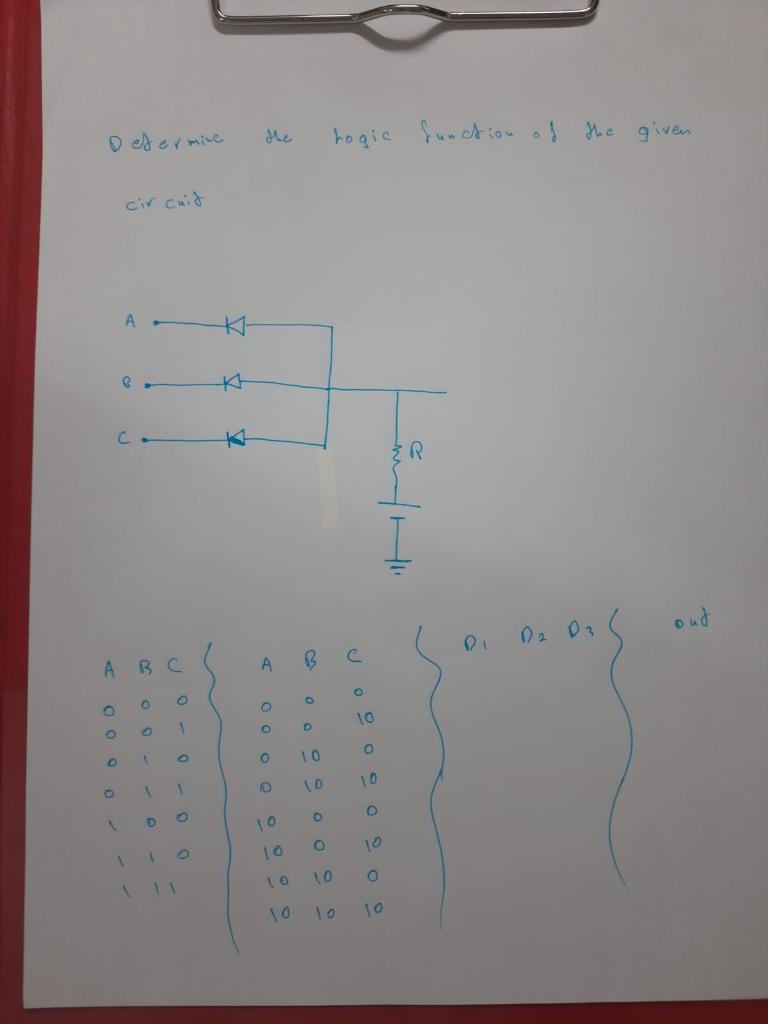 Determine the Logic function of the given
circuit
A
B
C
R
A B C A B C D1 D2 D3 out
0 0 0 0 0 0
0 0 1 0 0 10
0 1 0 0 10 0
0 1 1 0 10 10
1 0 0 10 0 0
1 1 0 10 0 10
1 1 1 10 10 0
10 10 10